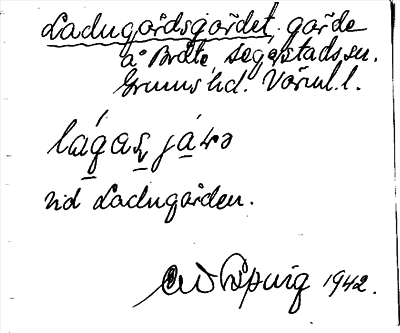 Ladugårdsgärdet, gärde
å Bråte, Segerstads sn.
Grums hd. Värml. l.
lágaʂ jáɹə
vid Ladugården.
1942.